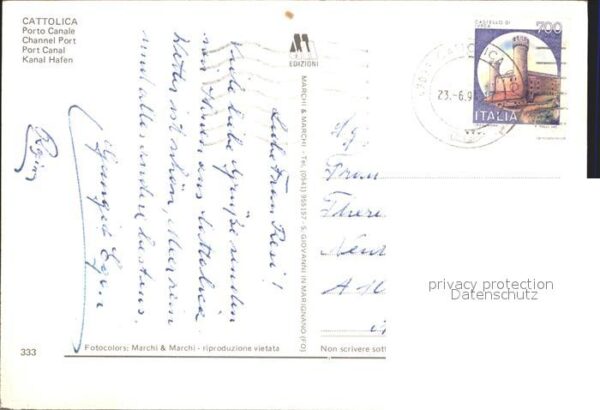 CATTOLICA
Porto Canale
Channel Port
Port Canal
Kanal Hafen
EDIZIONI
MARCHI & MARCHI - Tel. (0541) 955157 - S. GIOVANNI IN MARIGNANO (FO)
CASTELLO DI
IVREA
700
ITALIA
CATTOLICA
23.-6.9
Liebe Frau Resi!
Viele liebe Grüße senden
wir Ihnen aus Cattolica
Wetter ist schön, Meer rein
und alles andere bestens.
Egon
privacy protection
Datenschutz
333
Fotocolors: Marchi & Marchi - riproduzione vietata
Non scrivere sott